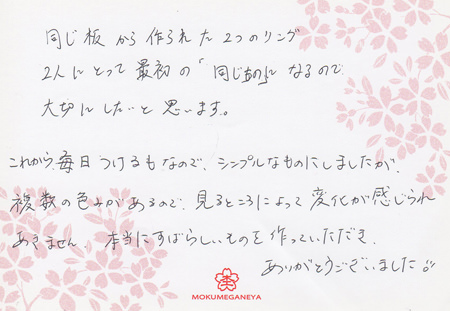 同じ板から作られた2つのリング
2人にとって最初の「同じもの」になるので
大切にしたいと思います。
これから、毎日つけるものなので、シンプルなものにしましたが、
複数の色みがあるので、見るところによって変化が感じられ
あきません。本当にすばらしいものを作っていただき、
ありがとうございました
MOKUMEGANEYA